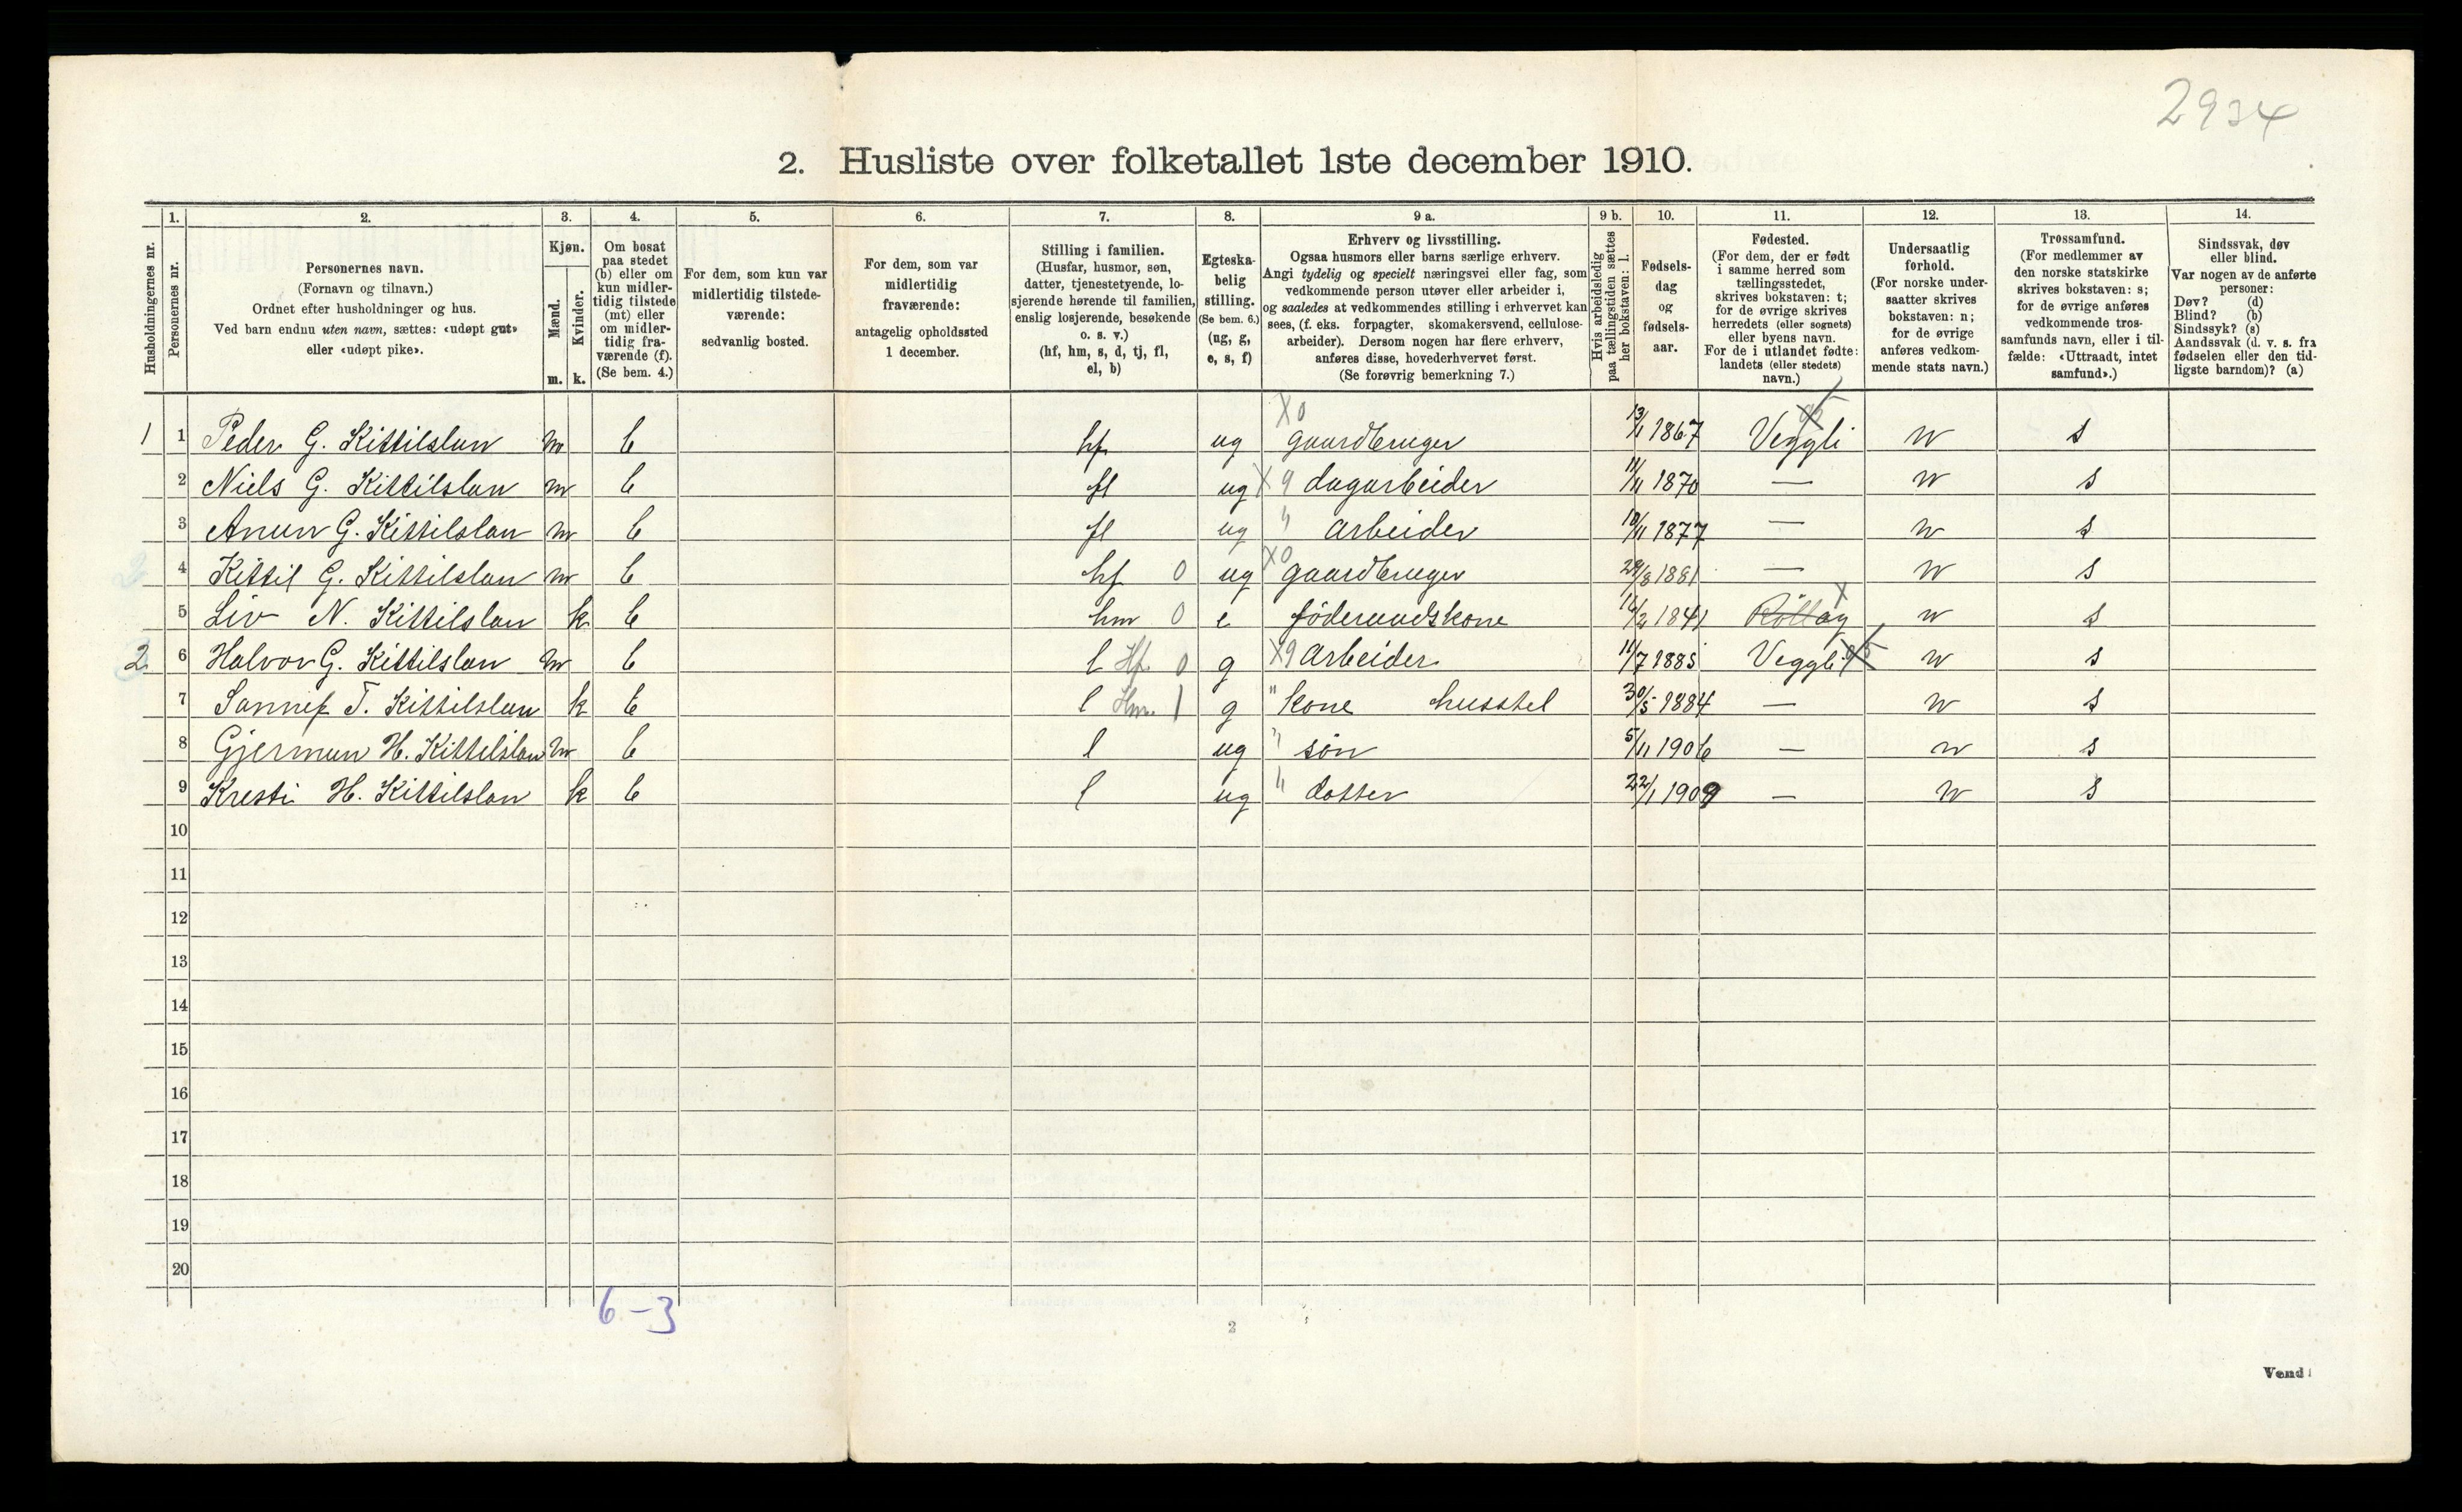 2934
2. Husliste over folketallet 1ste december 1910.
Husholdningernes nr.
1. Personernes nr.
2. Personernes navn. (Fornavn og tilnavn.) Ordnet efter husholdninger og hus. Ved barn endnu uten navn, sættes: «udøpt gut» eller «udøpt pike».
3. Kjøn. Mænd. m. Kvinder. k.
4. Om bosat paa stedet (b) eller om kun midlertidig tilstede (mt) eller om midlertidig fraværende (f). (Se bem. 4.)
5. For dem, som kun var midlertidig tilstedeværende: sedvanlig bosted.
6. For dem, som var midlertidig fraværende: antagelig opholdssted 1 december.
7. Stilling i familien. (Husfar, husmor, søn, datter, tjenestetyende, losjerende hørende til familien, enslig losjerende, besøkende o. s. v.) (hf, hm, s, d, tj, fl, el, b)
8. Egteskabelig stilling. (Se bem. 6.) (ug, g, e, s, f)
9 a. Erhverv og livsstilling. Ogsaa husmors eller barns særlige erhverv. Angi tydelig og specielt næringsvei eller fag, som vedkommende person utøver eller arbeider i, og saaledes at vedkommendes stilling i erhvervet kan sees, (f. eks. forpagter, skomakersvend, cellulosearbeider). Dersom nogen har flere erhverv, anføres disse, hovederhvervet først. (Se forøvrig bemerkning 7.)
9 b. Hvis arbeidsledig paa tællingstiden sættes her bokstaven: l.
10. Fødselsdag og fødselsaar.
11. Fødested. (For dem, der er født i samme herred som tællingsstedet, skrives bokstaven: t; for de øvrige skrives herredets (eller sognets) eller byens navn. For de i utlandet fødte: landets (eller stedets) navn.)
12. Undersaatlig forhold. (For norske undersaatter skrives bokstaven: n; for de øvrige anføres vedkommende stats navn.)
13. Trossamfund. (For medlemmer av den norske statskirke skrives bokstaven: s; for de øvrige anføres vedkommende trossamfunds navn, eller i tilfælde: «Uttraadt, intet samfund».)
14. Sindssvak, døv eller blind. Var nogen av de anførte personer: Døv? (d) Blind? (b) Sindssyk? (s) Aandssvak (d. v. s. fra fødselen eller den tidligste barndom)? (a)
1 1 Peder G. Kittilslan m b hf ug X0 gaardbruger 13/1 1867 Veggli n s
2 Niels G. Kittilslan m b fl ug X9 dagarbeider 11/11 1870 — n s
3 Anun G. Kittilslan m b fl ug " arbeider 10/11 1877 — n s
4 Kittil G. Kittilslan m b hf 0 ug X0 gaardbruger 29/8 1881 — n s
5 Liv N. Kittilslan k b hm 0 e föderaadskone 16/2 1841 Rollag n s
2 6 Halvor G. Kittilslan m b l Hf. 0 g X9 Arbeider 11/7 1885 Veggli n s
7 Sannef T. Kittilslan k b l Hm. 1 g " kone husstel 30/5 1884 — n s
8 Gjermun H. Kittilslan m b l ug " sön 5/11 1906 — n s
9 Kresti H. Kittilslan k b l ug " dotter 22/1 1909 — n s
10
11
12
13
14
15
16
17
18
19
20
6 - 3
2
Vend